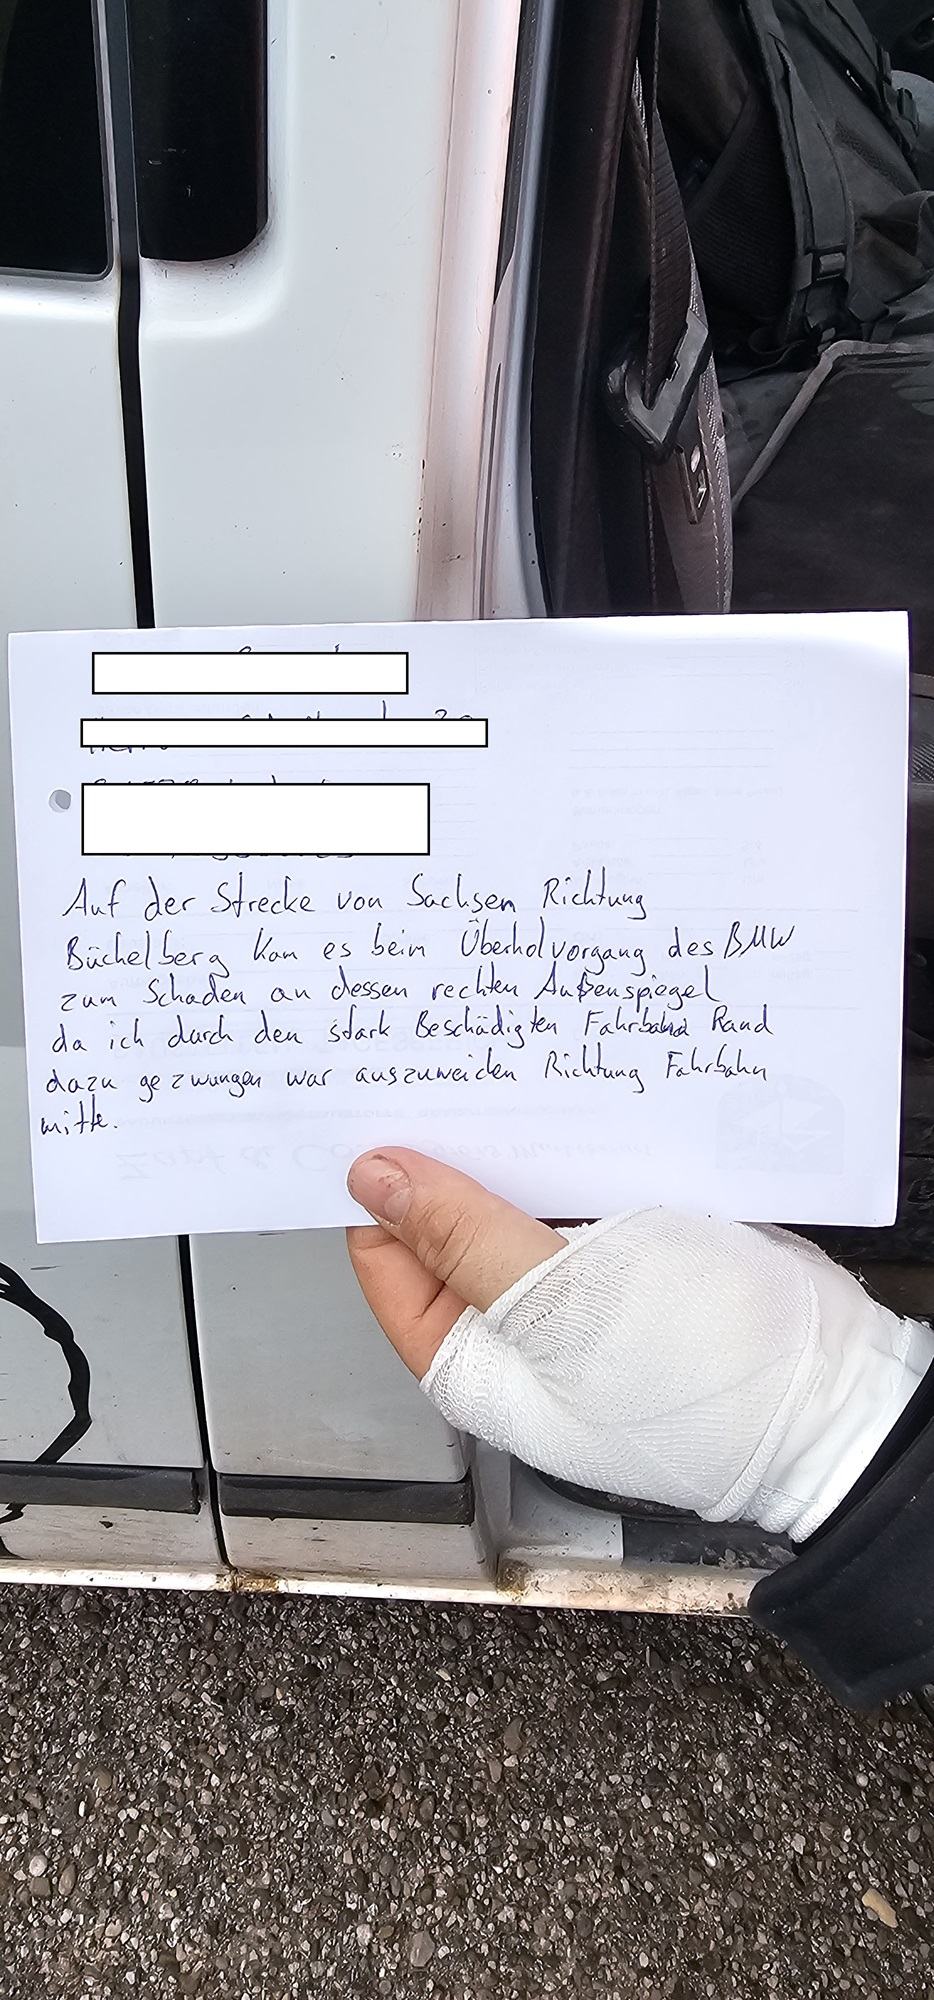 Auf der Strecke von Sachsen Richtung
Büchelberg kam es beim Überholvorgang des BMW
zum Schaden an dessen rechten Außenspiegel
da ich durch den stark Beschädigten Fahrbahn Rand
dazu gezwungen war auszuweichen Richtung Fahrbahn
mitte.